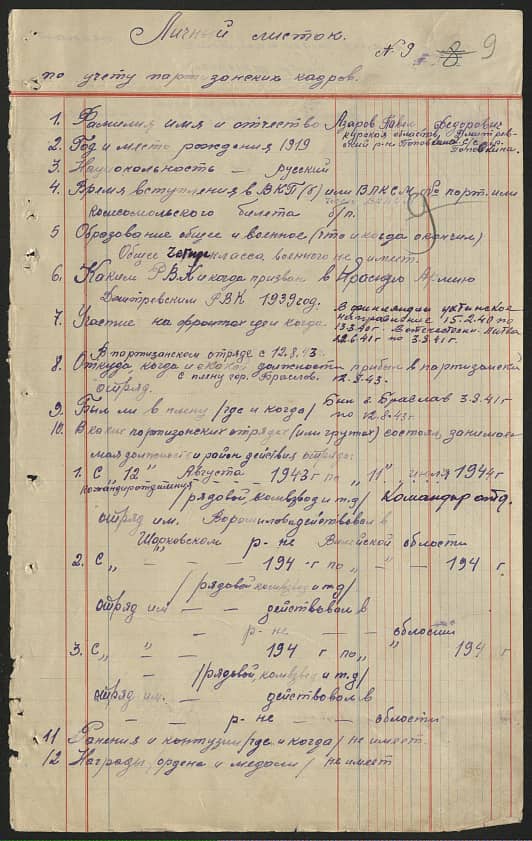 Личный листок.
N 9 9
по учету партизанских кадров.
1. Фамилия имя и отчество Азаров Павел Федорович
2. Год и место рождения 1919 Курская область, Дмитров-
ский р-н Поповкина.
3. Национальность – русский
4. Время вступления в ВКП(б) или ВЛКСМ, № парт. или
комсомольского билета б/п.
5 Образование общее и военное (что и когда окончил)
Общее четыре класса военного не имеет.
6. Каким РВК и когда призван в Красную Армию
Дмитревским РВК 1939 год.
7. Участие на фронтах где и когда. В финляндии ухтинское
направление 15.2.40 по
13.3.40 г. В отечествен. Литва
22.6.41 г по 3.8.41 г.
В партизанском отряде с 12.8.43.
8. Откуда, когда и какой должности прибыл в партизанский
отряд. с плену гор. Браслов. 12.8.43.
9 Был ли в плену /где и когда/ Был г. Браслав 3.8.41 г
по 12.8.43 г
10. В каких партизанских отрядах (или группах) состоял, занимае-
мая должность и район действия отряда:
1. С "12" Августа 1943 г по "11" июля 1944 г
Командир отделения /рядовой, комвзвод и т.д/ Командир отд.
отряд им. Ворошилова действовал в
Шарковском р-не Вилейской области
2. С „ – „ – – 194 г по „ – „ – 194 г.
/рядовой, комвзвод и т.д/
отряд им – – – действовал в
– р-не – – области
3. С „ „ – – 194 г по „ „ 194 г
– /рядовой, комвзвод и т.д/
отряд им. – – действовал в
– – – р-не – – области
11 Ранения и контузии /где и когда/ не имеет
12 Награды, ордена и медали / не имеет